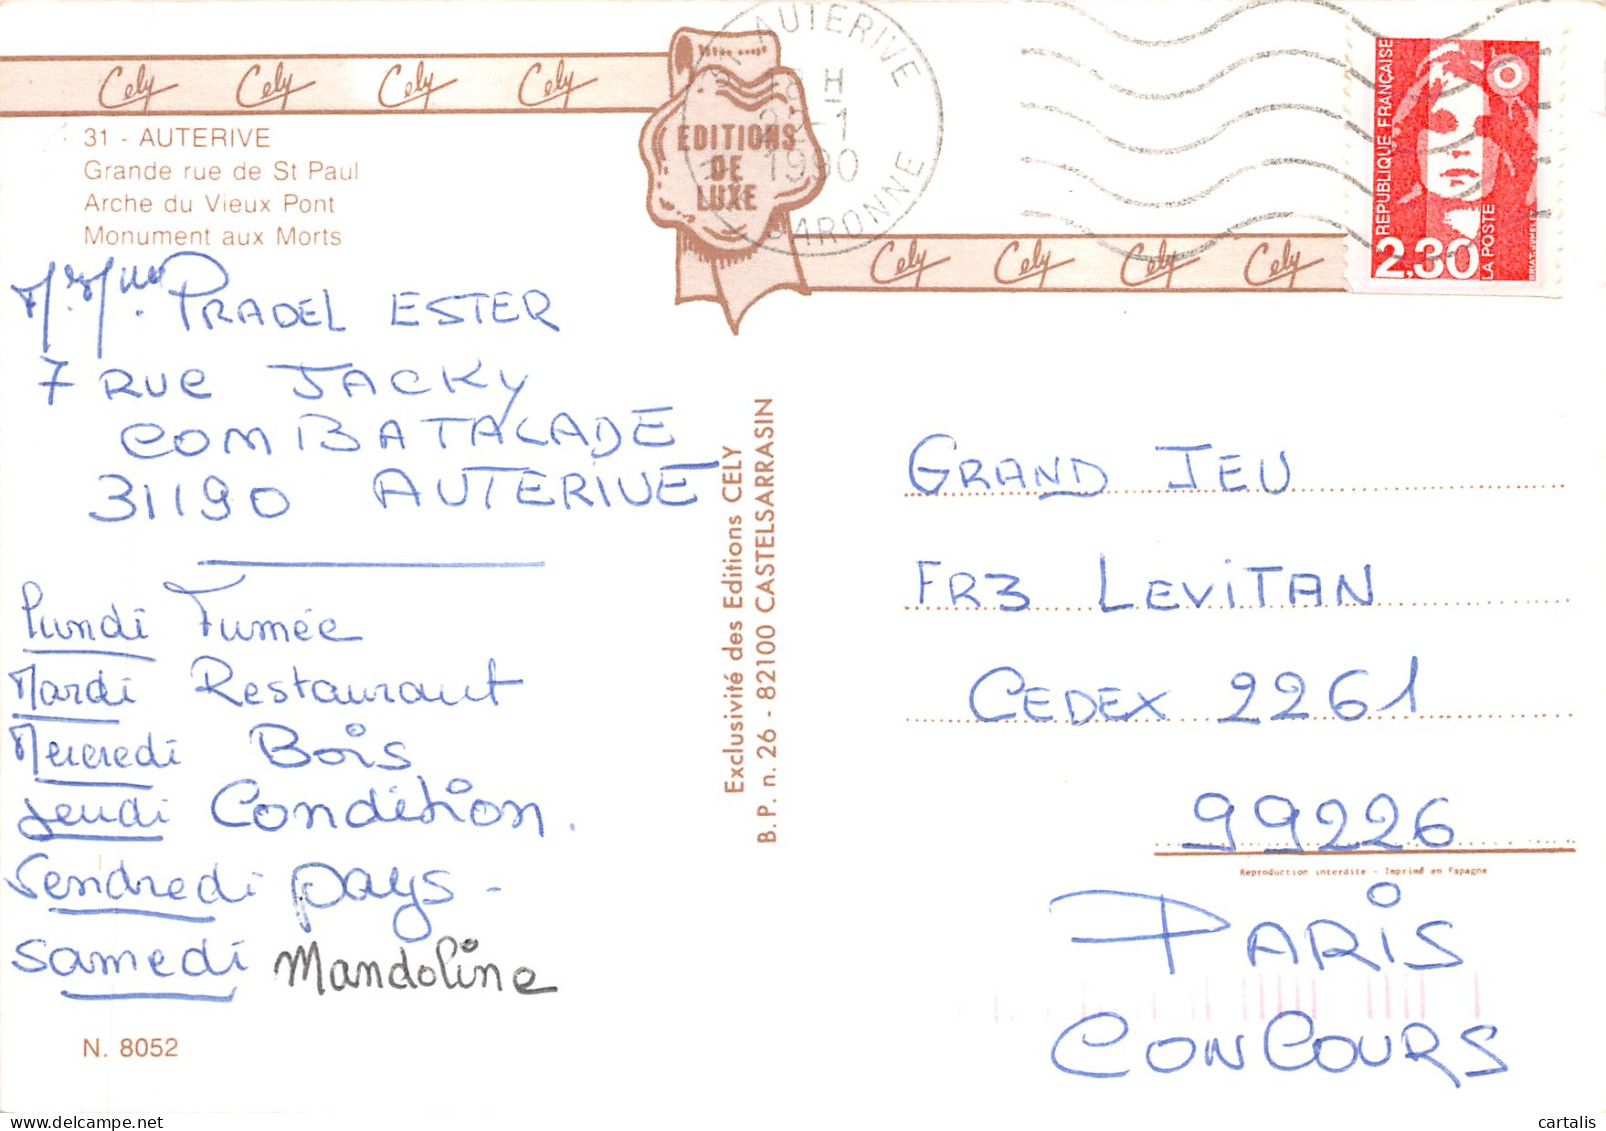 Cely Cely Cely Cely
31 - AUTERIVE
Grande rue de St Paul
Arche du Vieux Pont
Monument aux Morts
EDITIONS
DE
LUXE
AUTERIVE
18 H
22-1
1990
GARONNE
Cely Cely Cely Cely
REPUBLIQUE FRANÇAISE
2,30
LA POSTE
Mr. Mme. PRADEL ESTER
7 RUE JACKY
COMBATALADE
31190 AUTERIVE
Lundi Fumée
Mardi Restaurant
Mercredi Bois
Jeudi Condition.
Vendredi pays -
Samedi Mandoline
N. 8052
Exclusivité des Editions CELY
B.P. n. 26 - 82100 CASTELSARRASIN
GRAND JEU
FR3 LEVITAN
CEDEX 2261
99226
Reproduction interdite - Imprimé en Espagne
PARIS
CONCOURS
cartalis